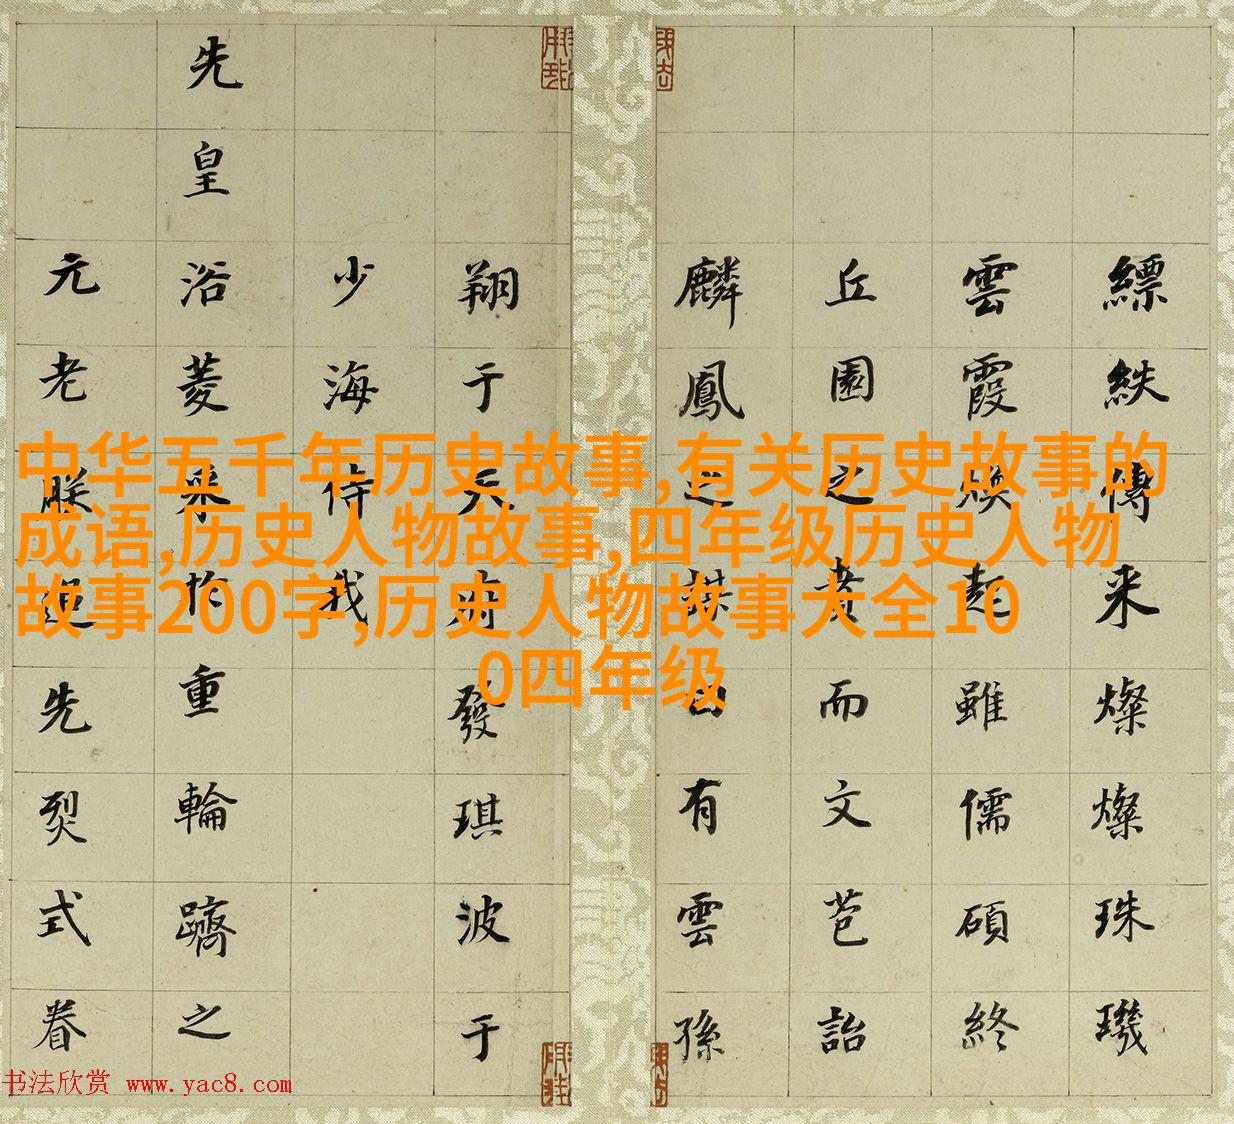 縹紩傳来燦燦珠璣
雲霞焕起雖儒碩終
丘園之賁而文芭詒
麟鳳之有雲孫
翔于天府發琪波于
少海侍我
先皇浴菱来重輪躋之
元老朕先烈式眷
中华五千年历史故事,有关历史故事的
成语,历史人物故事,四年级历史人物
故事200字,历史人物故事大全10
0四年级
书法欣赏 www.yac8.com